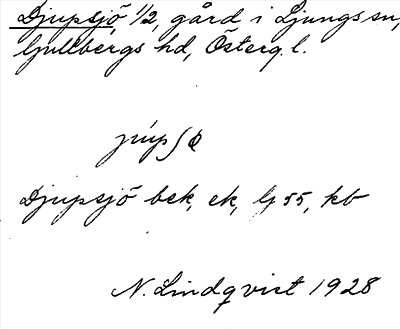 Djupsjö, 1/2, gård i Ljungs sn,
Gullbergs hd, Österg. l.
Djupsjö bek, ek, lj 55, kb
N. Lindqvist 1928